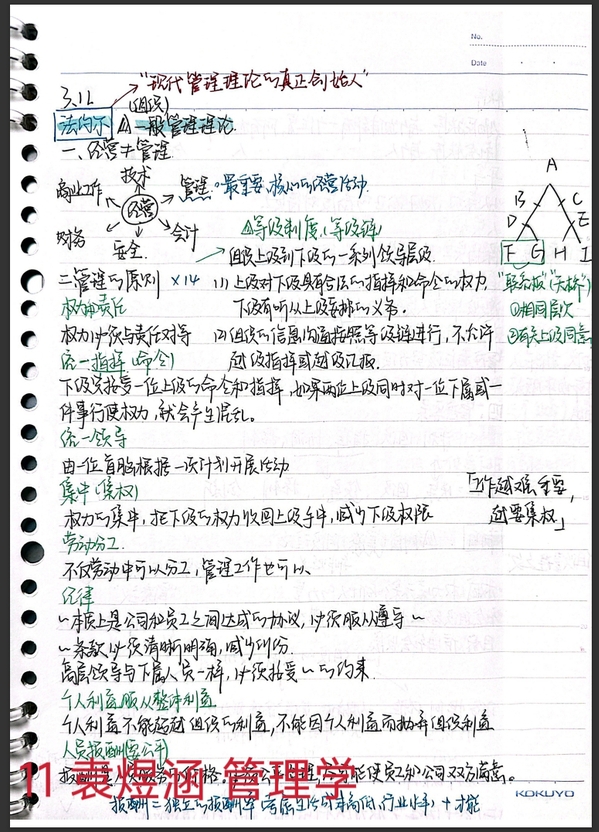 No.
Date
3.12
"现代管理理论的真正创始人"
(组织)
法约尔 一般管理理论
一、经营+管理
技术
商业工作
管理:最重要、核心的经营活动
经营
财务
安全
会计
等级制度(等级链)
组织上级到下级的一系列领导层级
A
B C
D E
F G H I
"联合板"("天桥")
①相同层次
②有关上级同意
二、管理的原则 ×14
(1) 上级对下级具有合法的指挥和命令的权力
下级有听从上级安排的义务。
(2) 组织的信息沟通按照等级链进行,不允许
越级指挥或越级汇报。
权力和责任
权力必须与责任对等
统一指挥(命令)
下级只接受一位上级的命令和指挥,如果两位上级同时对一位下属或一
件事行使权力,就会产生混乱。
统一领导
由一位首脑根据一项计划开展活动
集中(集权)
权力的集中,把下级的权力收回上级手中,减少下级权限
「工作越难、重要,
越要集权」
劳动分工
不仅劳动中可以分工,管理工作也可以、
纪律
~本质上是公司和员工之间达成的协议,必须服从遵守~
~条款必须清晰明确,减少纠纷
高层领导与下属人员一样,必须接受~的约束
个人利益服从整体利益
个人利益不能超越组织的利益,不能因个人利益而抛弃组织利益
人员报酬要公平
使员工和公司双方满意。
11 袁煜涵 管理学
KOKUYO
报酬=独立的报酬率(考虑生活成本高低、行业水平)+才能